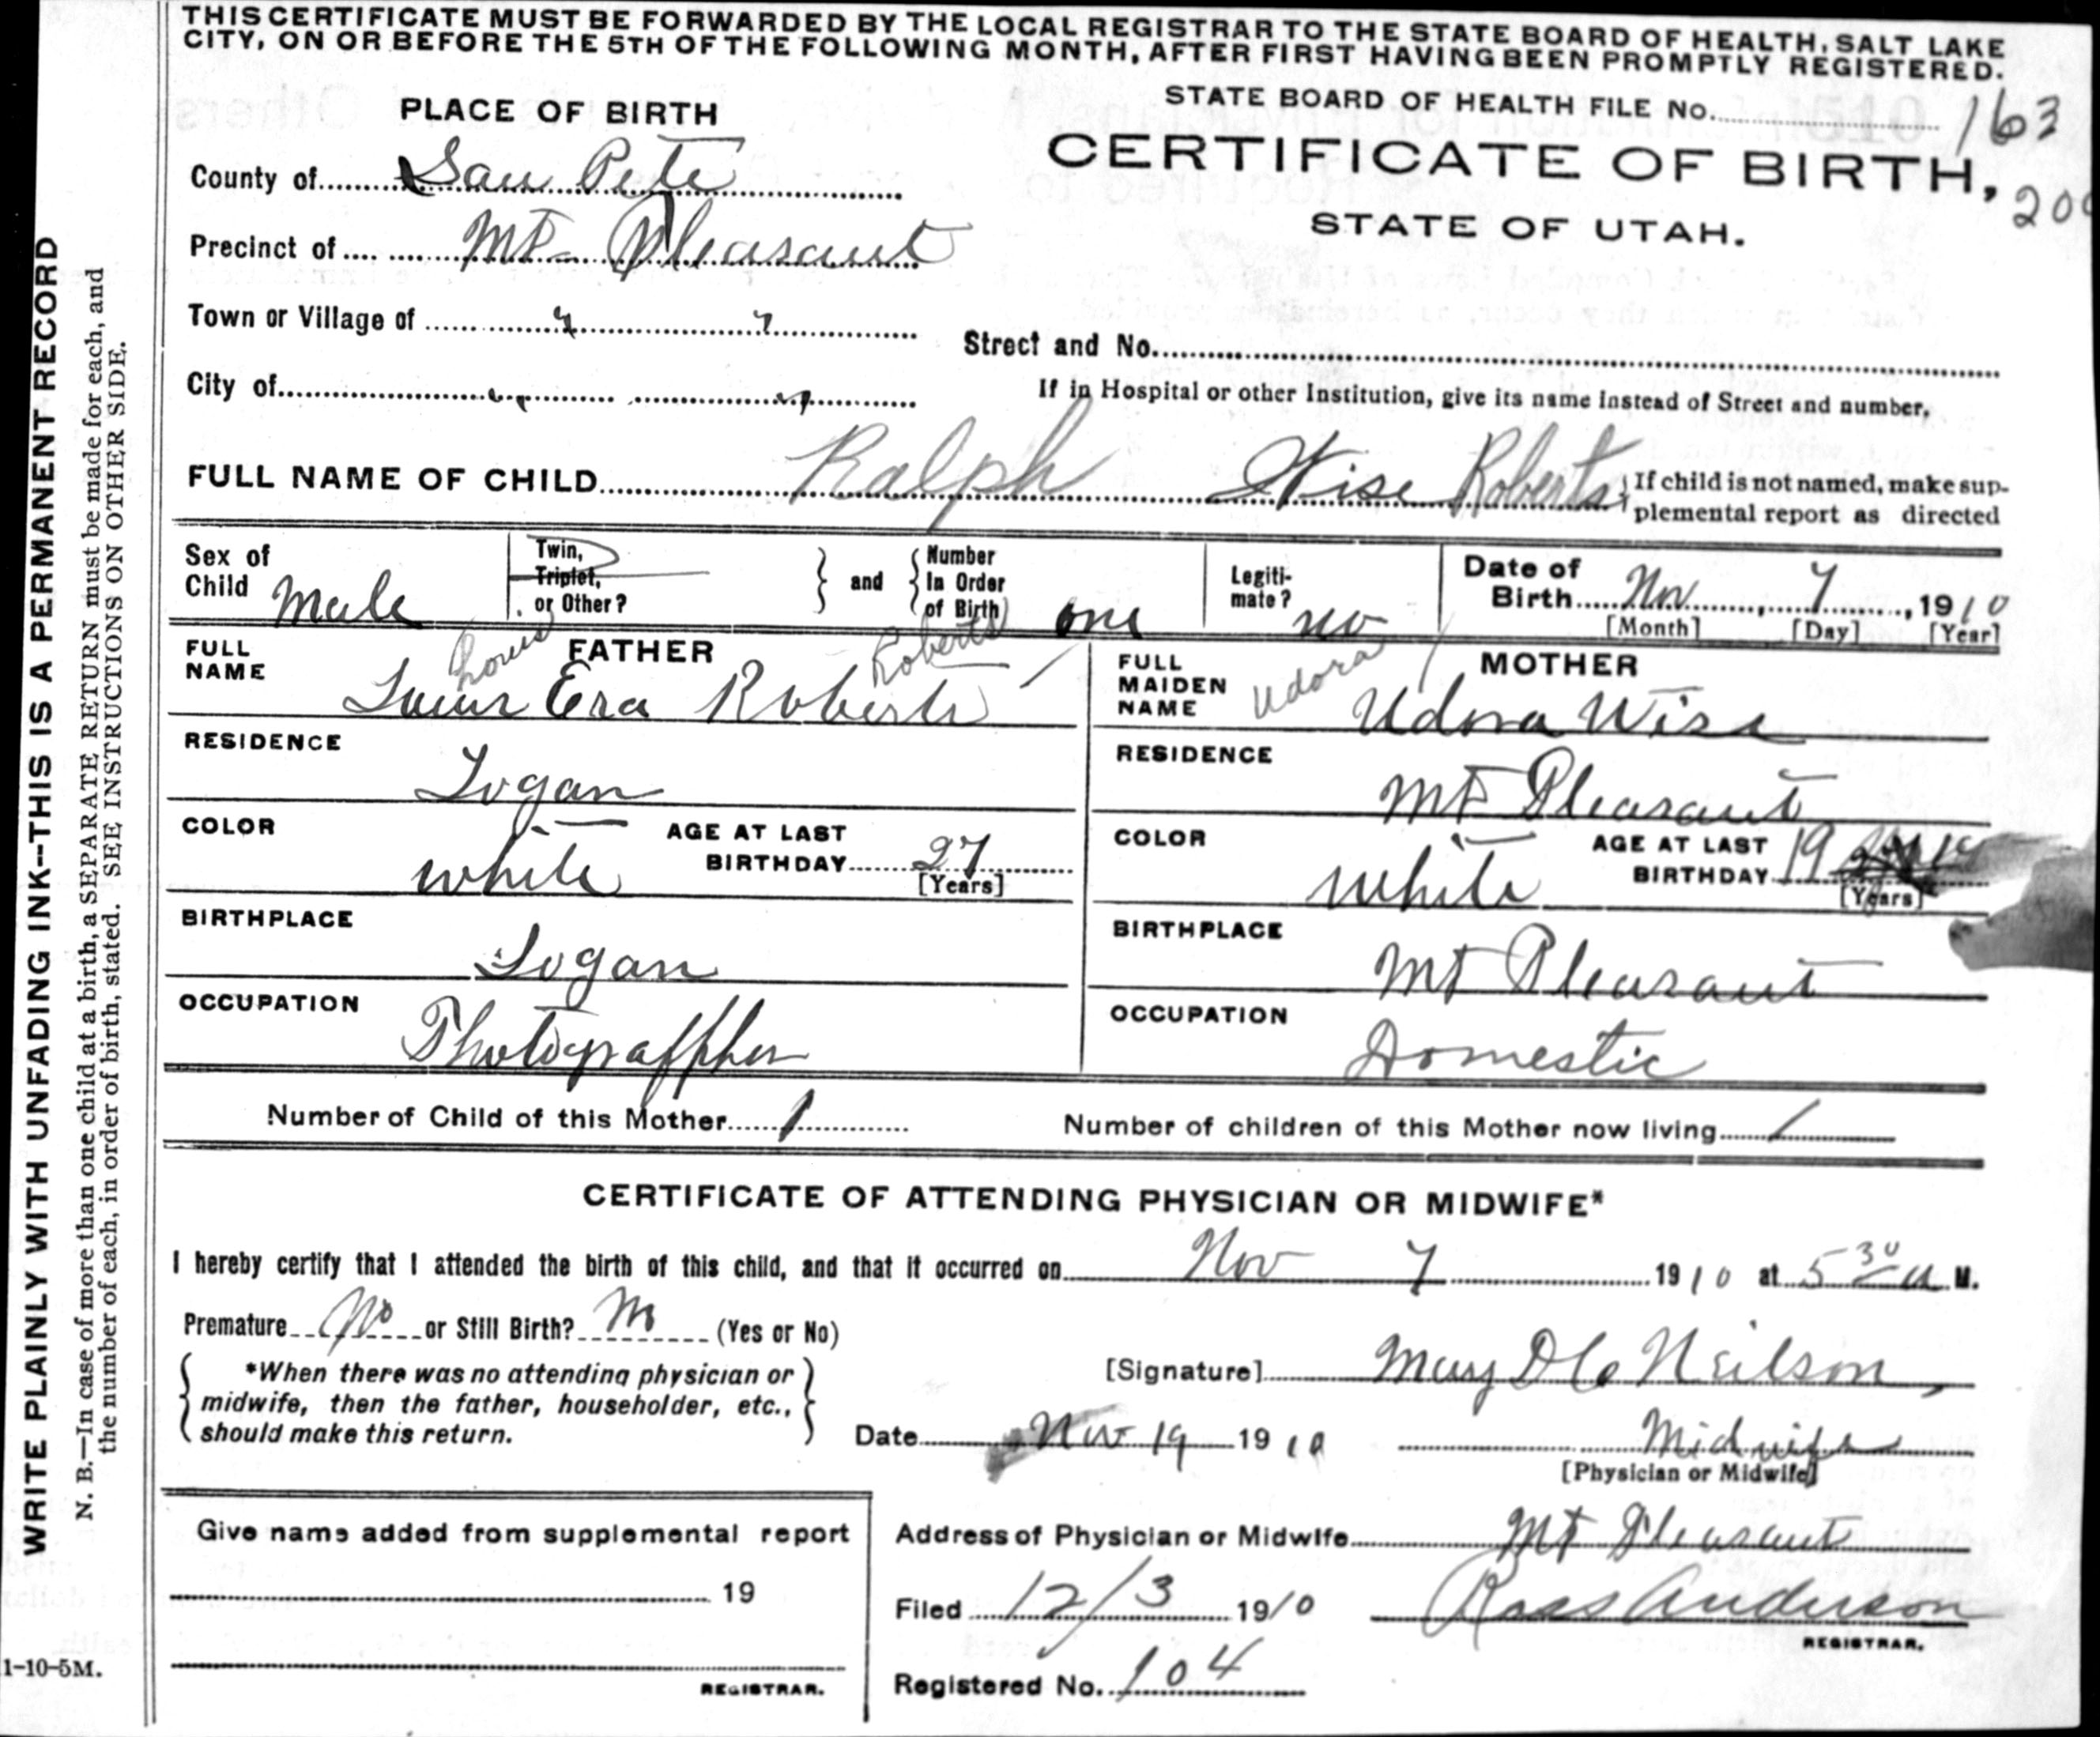 THIS CERTIFICATE MUST BE FORWARDED BY THE LOCAL REGISTRAR TO THE STATE BOARD OF HEALTH, SALT LAKE
CITY, ON OR BEFORE THE 5TH OF THE FOLLOWING MONTH, AFTER FIRST HAVING BEEN PROMPTLY REGISTERED.
WRITE PLAINLY WITH UNFADING INK--THIS IS A PERMANENT RECORD
N. B.—In case of more than one child at a birth, a SEPARATE RETURN must be made for each, and
the number of each, in order of birth, stated. SEE INSTRUCTIONS ON OTHER SIDE.
1-10-5M.
PLACE OF BIRTH
STATE BOARD OF HEALTH FILE No. 163
County of San Pete
CERTIFICATE OF BIRTH,
200
STATE OF UTAH.
Precinct of Mt Pleasant
Town or Village of " "
Street and No.
City of " "
If in Hospital or other Institution, give its name instead of Street and number.
FULL NAME OF CHILD Ralph Wise Roberts
If child is not named, make sup-
plemental report as directed
Sex of Child Male
Twin, Triplet, or Other?
and
Number In Order of Birth one
Legiti-mate? no
Date of Birth Nov 7, 1910
[Month] [Day] [Year]
FATHER
Louis Roberts
FULL NAME Ezra Roberts
RESIDENCE Logan
COLOR white
AGE AT LAST BIRTHDAY 27
[Years]
BIRTHPLACE Logan
OCCUPATION Photograffher
MOTHER
Udora
FULL MAIDEN NAME Udora Wise
RESIDENCE Mt Pleasant
COLOR white
AGE AT LAST BIRTHDAY 19
[Years]
BIRTHPLACE Mt Pleasant
OCCUPATION Domestic
Number of Child of this Mother 1
Number of children of this Mother now living 1
CERTIFICATE OF ATTENDING PHYSICIAN OR MIDWIFE*
I hereby certify that I attended the birth of this child, and that it occurred on Nov 7 1910 at 5 30 a M.
Premature No or Still Birth? No (Yes or No)
*When there was no attending physician or
midwife, then the father, householder, etc.,
should make this return.
[Signature] Mary Neilson,
Date Nov 19 1910
Midwife
[Physician or Midwife]
Give name added from supplemental report
19
REGISTRAR.
Address of Physician or Midwife Mt Pleasant
Filed 12/3 1910
Ross Anderson
REGISTRAR.
Registered No. 104